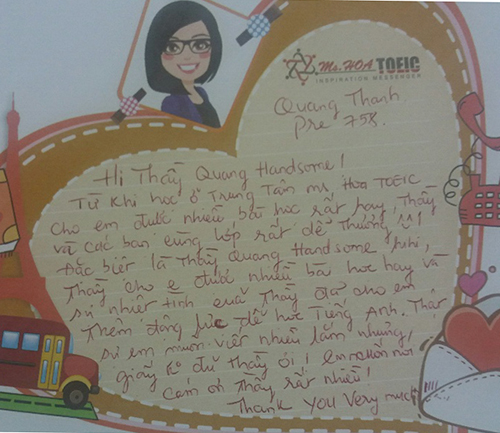 Ms. HOA TOEIC
INSPIRATION MESSENGER
Quang Thanh.
Pre 758.
Hi Thầy Quang Handsome!
Từ khi học ở Trung Tâm ms Hoa TOEIC
cho em được nhiều bài học rất hay, Thầy
và các bạn cùng lớp rất dễ thương
Đặc biệt là Thầy Quang Handsome hihi,
Thầy cho e được nhiều bài học hay và
sự nhiệt tình của Thầy đã cho em
thêm động lực để học Tiếng Anh. Thật
sự em muốn viết nhiều lắm nhưng
giấy k đủ thầy ơi! em muốn nói
Cám ơn Thầy rất nhiều!
Thank you very much